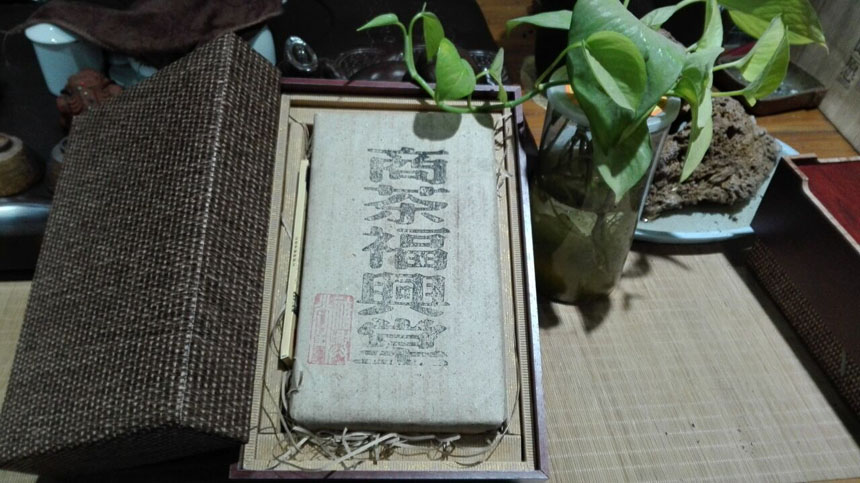 商茶福興堂